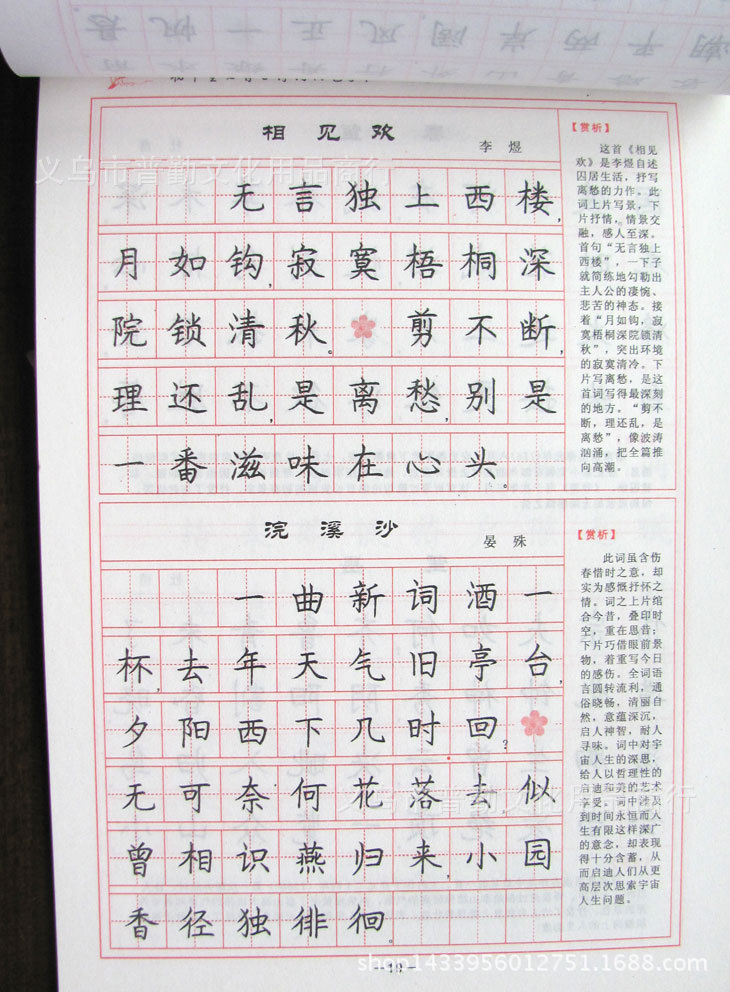 潮平两岸阔风正一帆悬
相见欢
李煜
无言独上西楼,
月如钩,寂寞梧桐深
院锁清秋。剪不断,
理还乱,是离愁,别是
一番滋味在心头。
【赏析】
这首《相见
欢》是李煜自述
囚居生活，抒写
离愁的力作。此
词上片写景，下
片抒情，情景交
融，感人至深。
首句“无言独上
西楼”，一下子
就简练地勾勒出
主人公的凄惋、
悲苦的神态。接
着“月如钩，寂
寞梧桐深院锁清
秋”，突出环境
的寂寞清冷。下
片写离愁，是这
首词写得最深刻
的地方。“剪不
断，理还乱，是
离愁”，像波涛
汹涌，把全篇推
向高潮。
浣溪沙
晏殊
一曲新词酒一
杯,去年天气旧亭台,
夕阳西下几时回?
无可奈何花落去似
曾相识燕归来,小园
香径独徘徊。
【赏析】
此词虽含伤
春惜时之意，却
实为感慨抒怀之
情。词之上片绾
合今昔，叠印时
空，重在思昔；
下片巧借眼前景
物，着重写今日
的感伤。全词语
言圆转流利，通
俗晓畅，清丽自
然，意蕴深沉，
启人神智，耐人
寻味。词中对宇
宙人生的深思，
给人以哲理性的
启迪和美的艺术
享受。词中涉及
到时间永恒而人
生有限这样深广
的意念，却表现
得十分含蓄，从
而启迪人们从更
高层次思索宇宙
人生问题。
-10-
义乌市普勤文化用品商行
义乌市普勤文化用品商行
shop1433956012751.1688.com